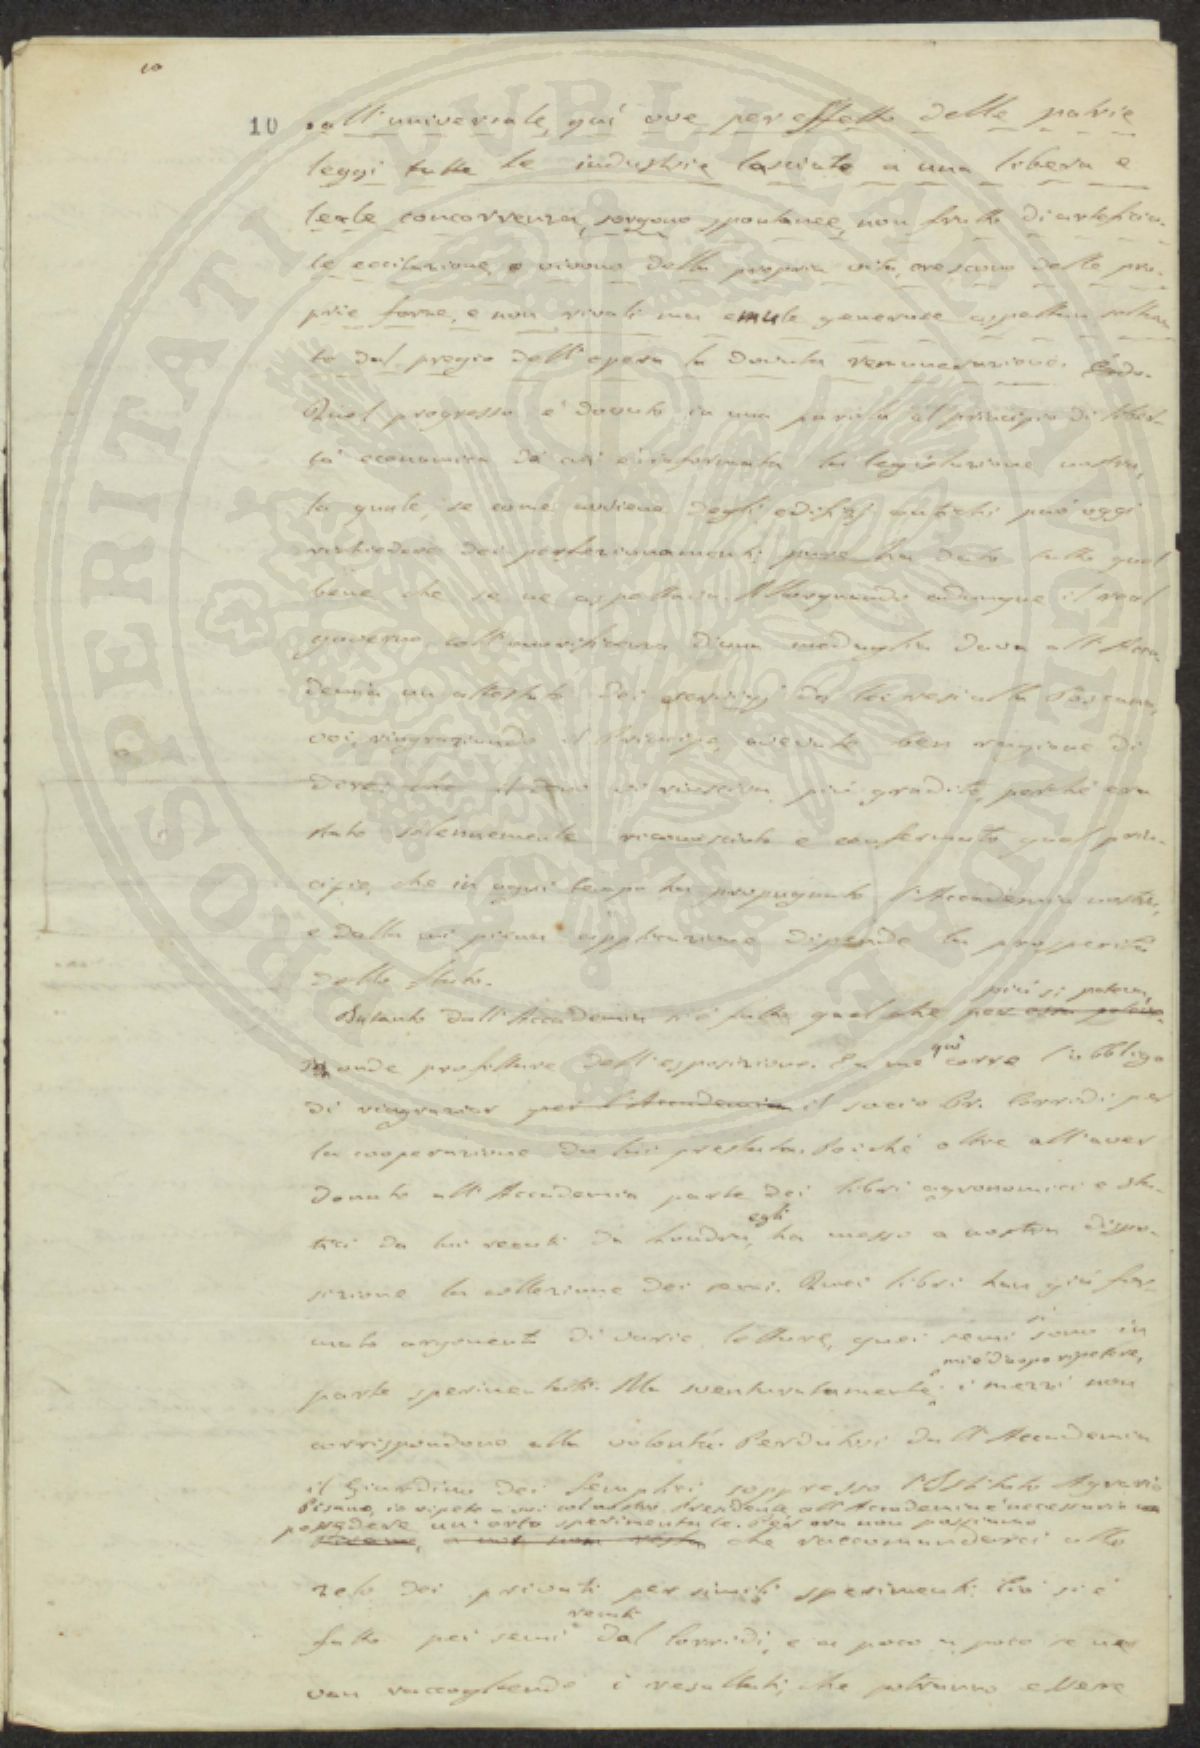 10
10 all'universale, qui ove per effetto delle patrie
leggi tutte le industrie lasciate a una libera e
leale concorrenza, sorgono spontanee, non frutto di artificia-
le eccitazione, e vivono della propria vita, crescono delle pro-
prie forze, e non rivali ma emule generose aspettan soltan
to dal pregio dell'opera la dovuta remunerazione.
Quel progresso è dovuto in una parola al principio di liber-
tà economica da cui è informata la legislazione nostra,
la quale, se come avviene degli edifizj antichi può oggi
richiedere dei perfezionamenti, pure ha dato tutto quel
bene che se ne aspettava. Allorquando adunque il real
governo coll'onorificenza d'una medaglia dava all'Acca
demia un attestato dei servizj da lei resi alla Toscana,
voi, ringraziando il Principe, aveste ben ragione di
dire, che il dono vi riusciva più gradito, perchè era
stato solennemente riconosciuto e confermato quel prin-
cipio, che in ogni tempo ha propugnato l'Accademia nostra,
e dalla cui piena applicazione dipende la prosperità
dello Stato.
più si poteva,
Intanto dall'Accademia si è fatto quel che per essa poteva-
onde profittare dell'esposizione. Ed a me qui corre l'obbligo
di ringraziar per l'Accademia il socio Pr. Corridi per
la cooperazione da lui prestata. Poichè oltre all'aver
donato all'Accademia parte dei libri agronomici e sta-
tici da lui recati da Londra, egli ha messo a nostra dispo-
sizione la collezione dei semi. Quei libri han già for-
mato argomento di varie letture, quei semi si sono in
mi è d'uopo ripetere,
parte sperimentati. Ma sventuratamente, i mezzi non
corrispondono alla volontà. Perdutosi dall'Accademia
il Giardino dei Semplici, soppresso l'Istituto Agrario
Pisano, io ripeto a voi col nostro Presidente, all'Accademia è necessario
possedere un'orto sperimentale. Per ora non possiamo
Pisano, a noi non resta che raccomandarci allo
zelo dei privati per simili sperimenti. Così si è
fatto pei semi recati dal Corridi, e a poco a poco se ne
van raccogliendo i resultati, che potranno essere